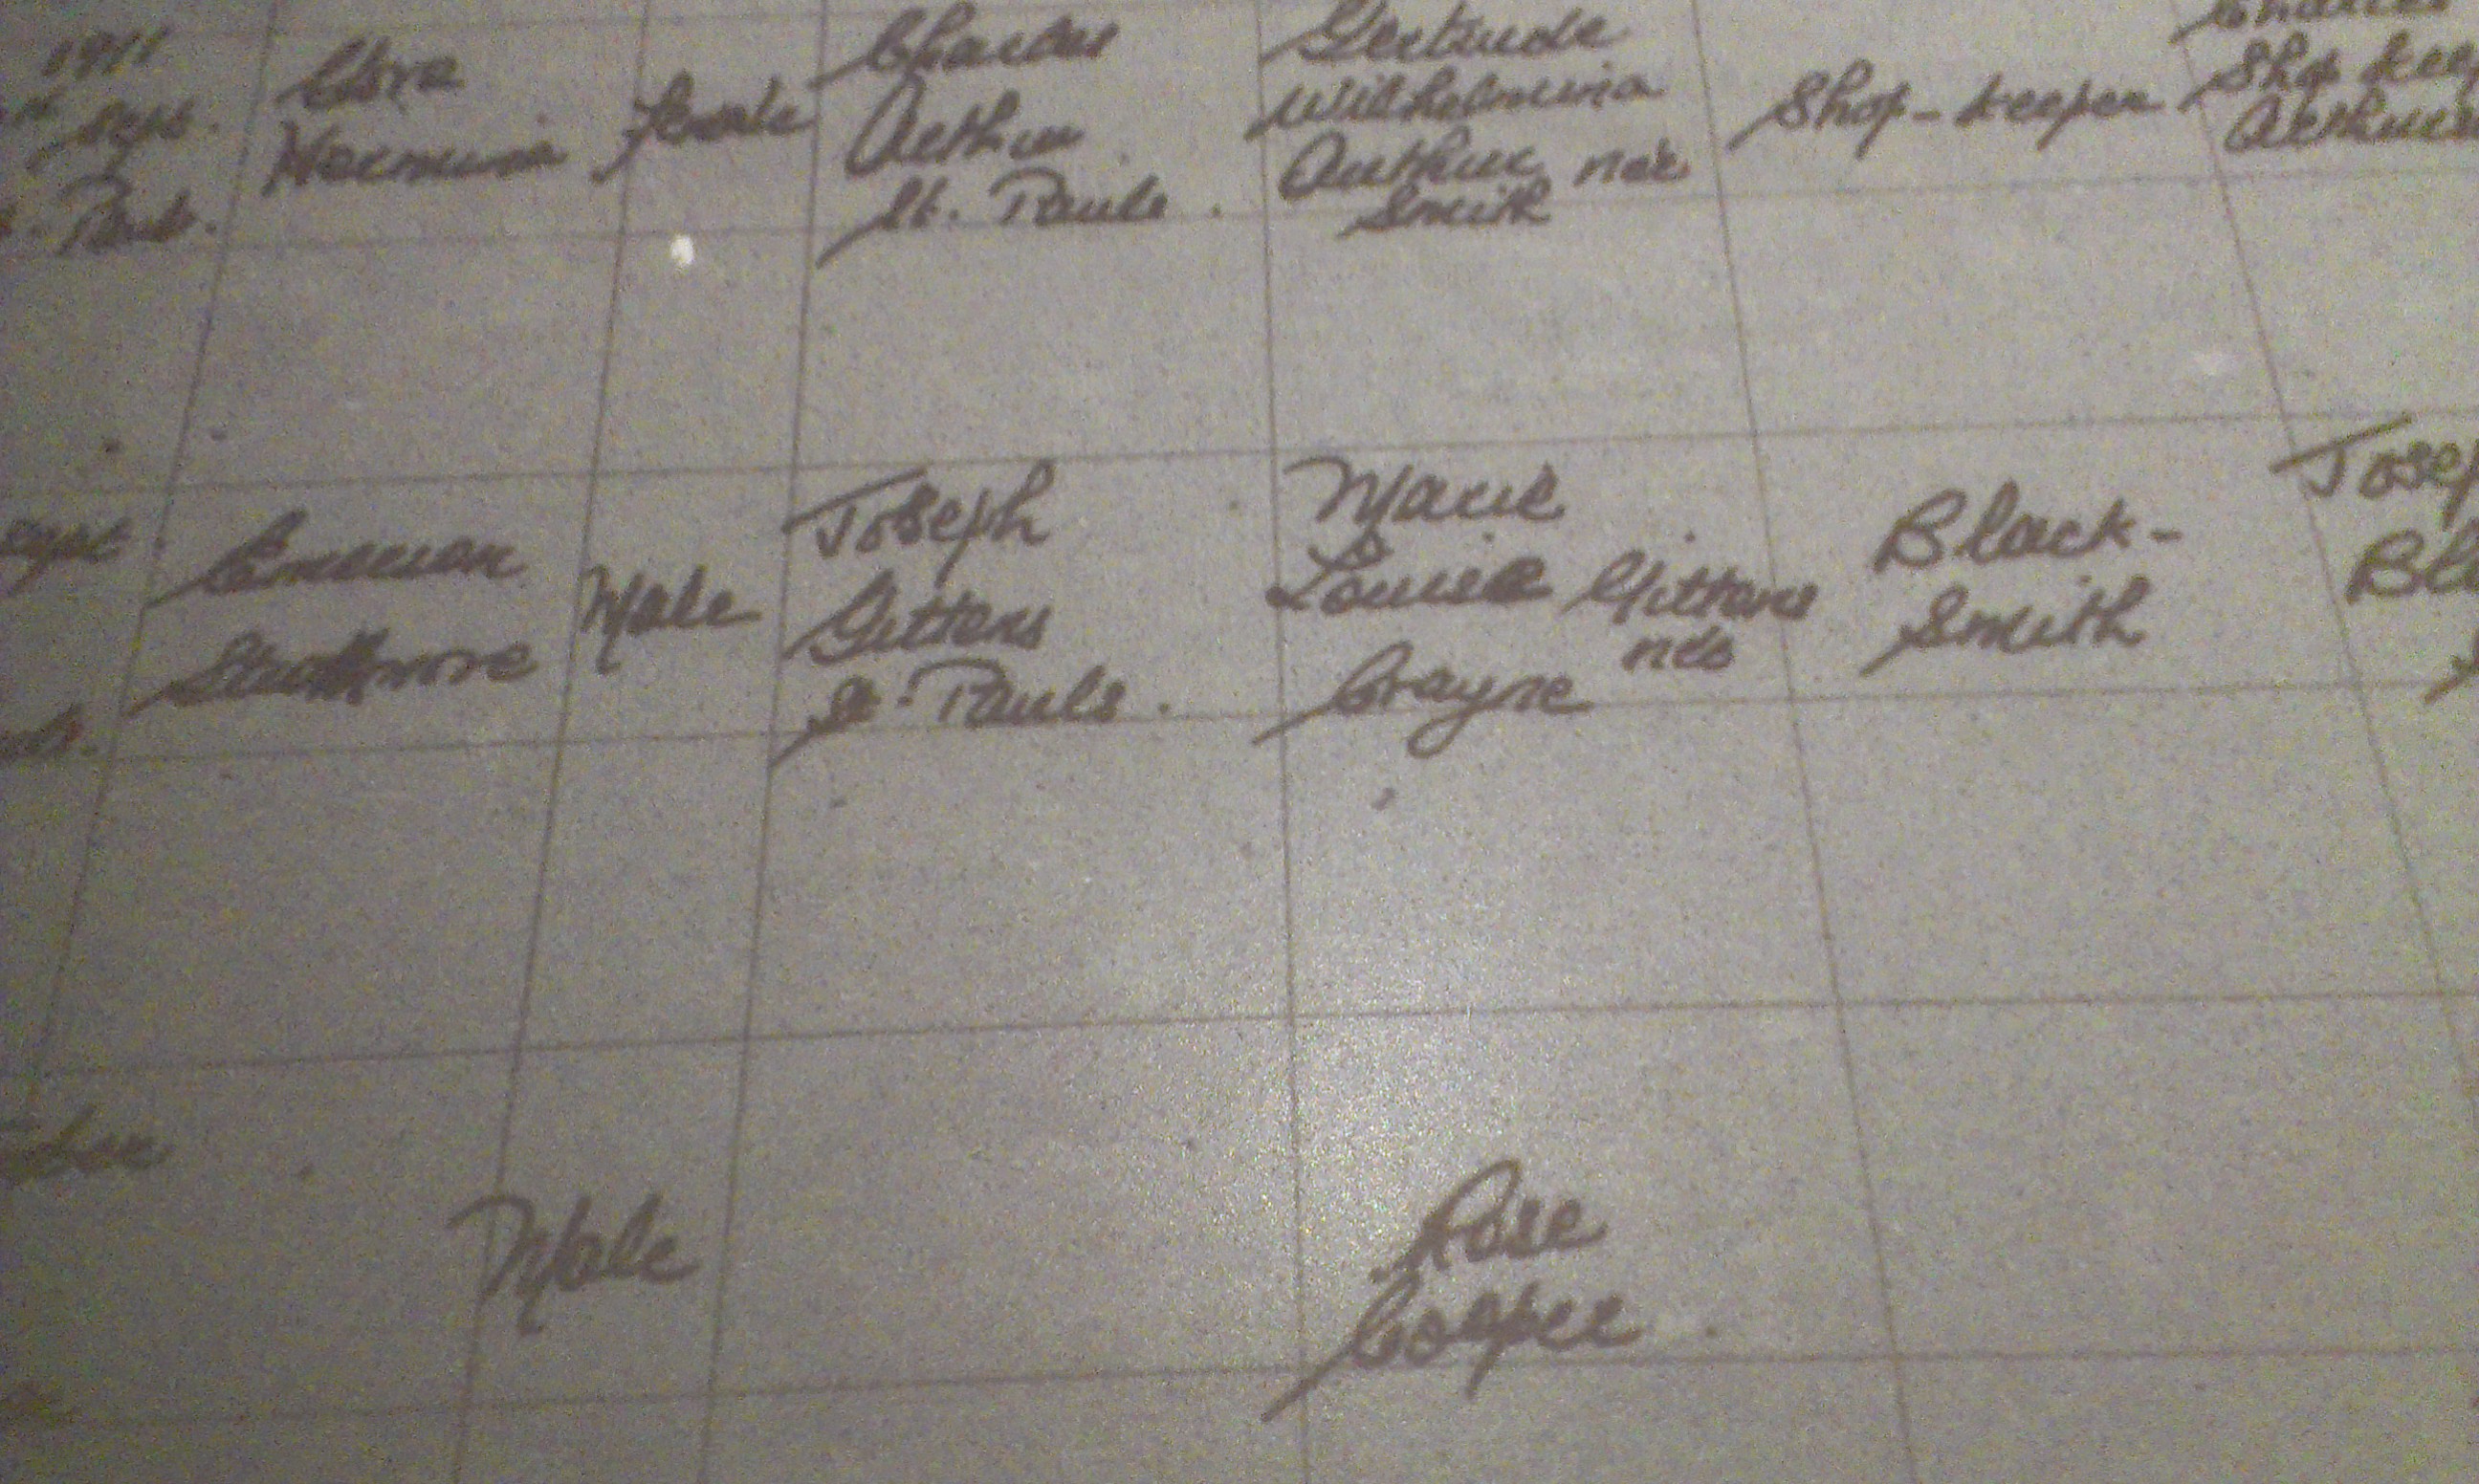 1911
Sept.
Cora
Hermina
female
Charles
Arthur
St. Pauls.
Gertrude
Wilhelmina
Arthur neé
Smith
Shop-keeper
Charles
Shop keep
Arthur
Sept
Emerson
Strathmore
Male
Joseph
Gittens
St. Pauls.
Marie
Louise Gittens
neé
Crayne
Black-
Smith
Josep
Bla
Male
Rose
Cooper.